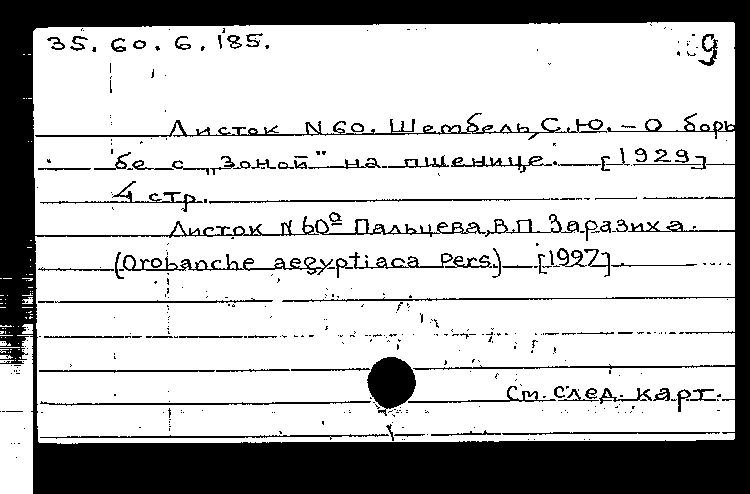 35. 60. 6. 185.
9
Листок N 60. Шембель, С.Ю. – О борь
бе с „Зоной" на пшенице. [1929]
4 стр.
Листок N 60а Пальцева, В.П. Заразиха.
(Orobanche aegyptiaca Pers.) [1927].
См. след. карт.